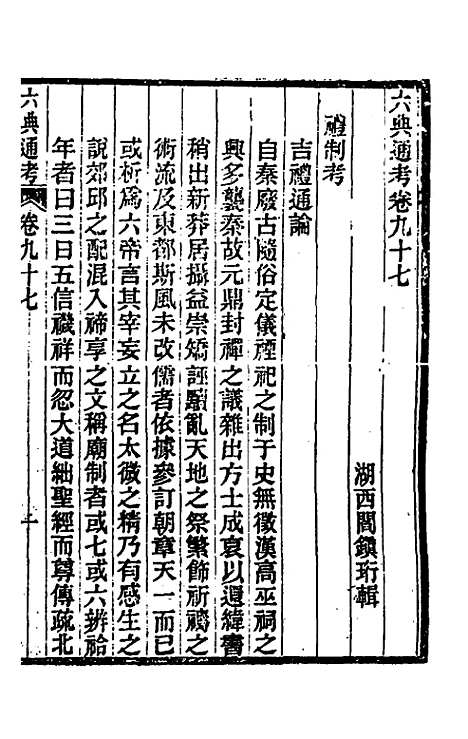 六典通考卷九十七
湖西閻鎮珩輯
禮制考
吉禮通論
自秦廢古隨俗定儀禋祀之制于史無徵漢高巫祠之
興多襲秦故元鼎封禪之議雜出方士成哀以還緯書
稍出新莽居攝益崇矯誣黷亂天地之祭繁飾祈禱之
術流及東都斯風未改儒者依據參訂朝章天一而已
或析爲六帝言其宰妄立之名太微之精乃有感生之
說郊邱之配混入禘享之文稱廟制者或七或六辨祫
年者曰三曰五信禨祥而忽大道絀聖經而尊傳疏北
六典通考
卷九十七
一